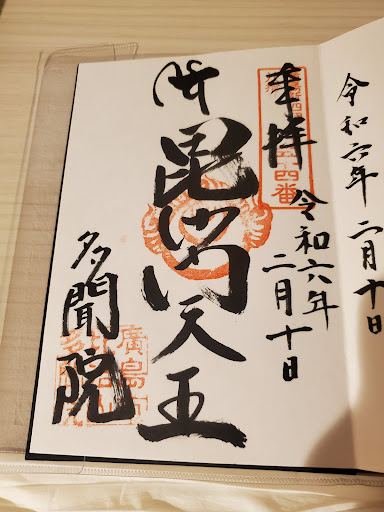 令和六年 二月十日
奉拝
令和六年
二月十日
毘沙門天王
多聞院
四番
廣島